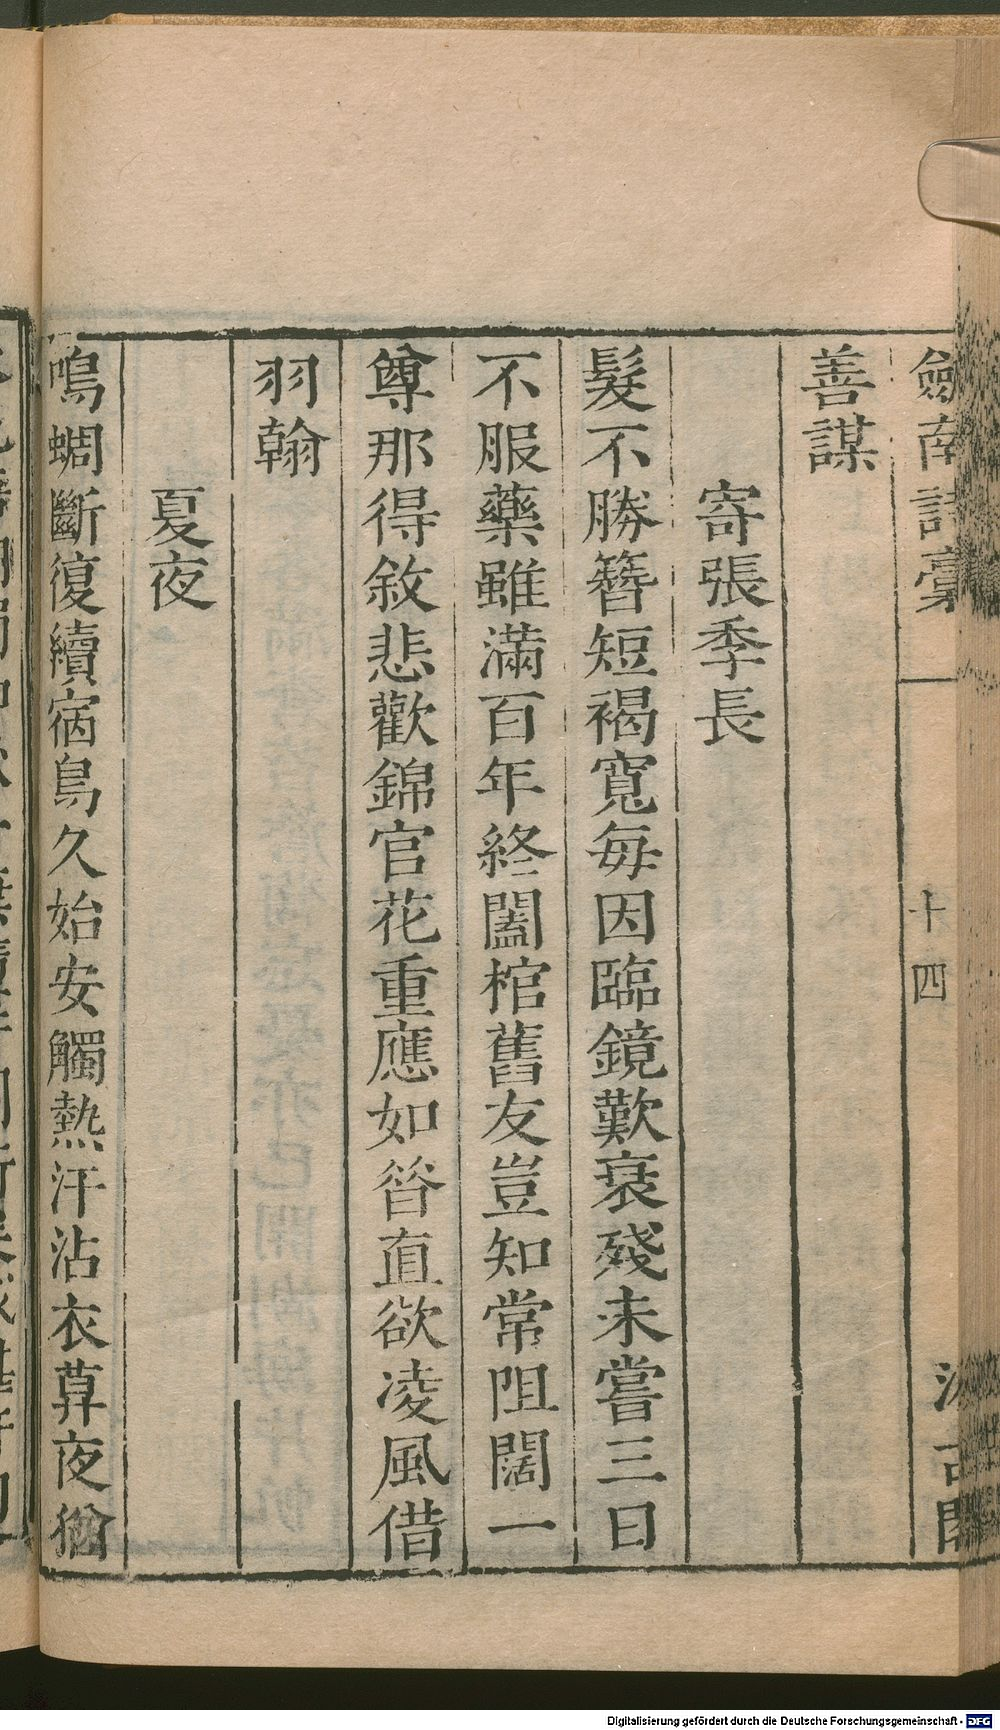 劒南詩稾
十四
汲古閣
善謀
寄張季長
髮不勝簪短褐寬每因臨鏡歎衰殘未嘗三日
不服藥雖滿百年終闔棺舊友豈知常阻闊一
尊那得敘悲歡錦官花重應如昝直欲凌風借
羽翰
夏夜
鳴蜩斷復續宿鳥久始安觸熱汗沾衣莫夜猶
Digitalisierung gefördert durch die Deutsche Forschungsgemeinschaft - DFG